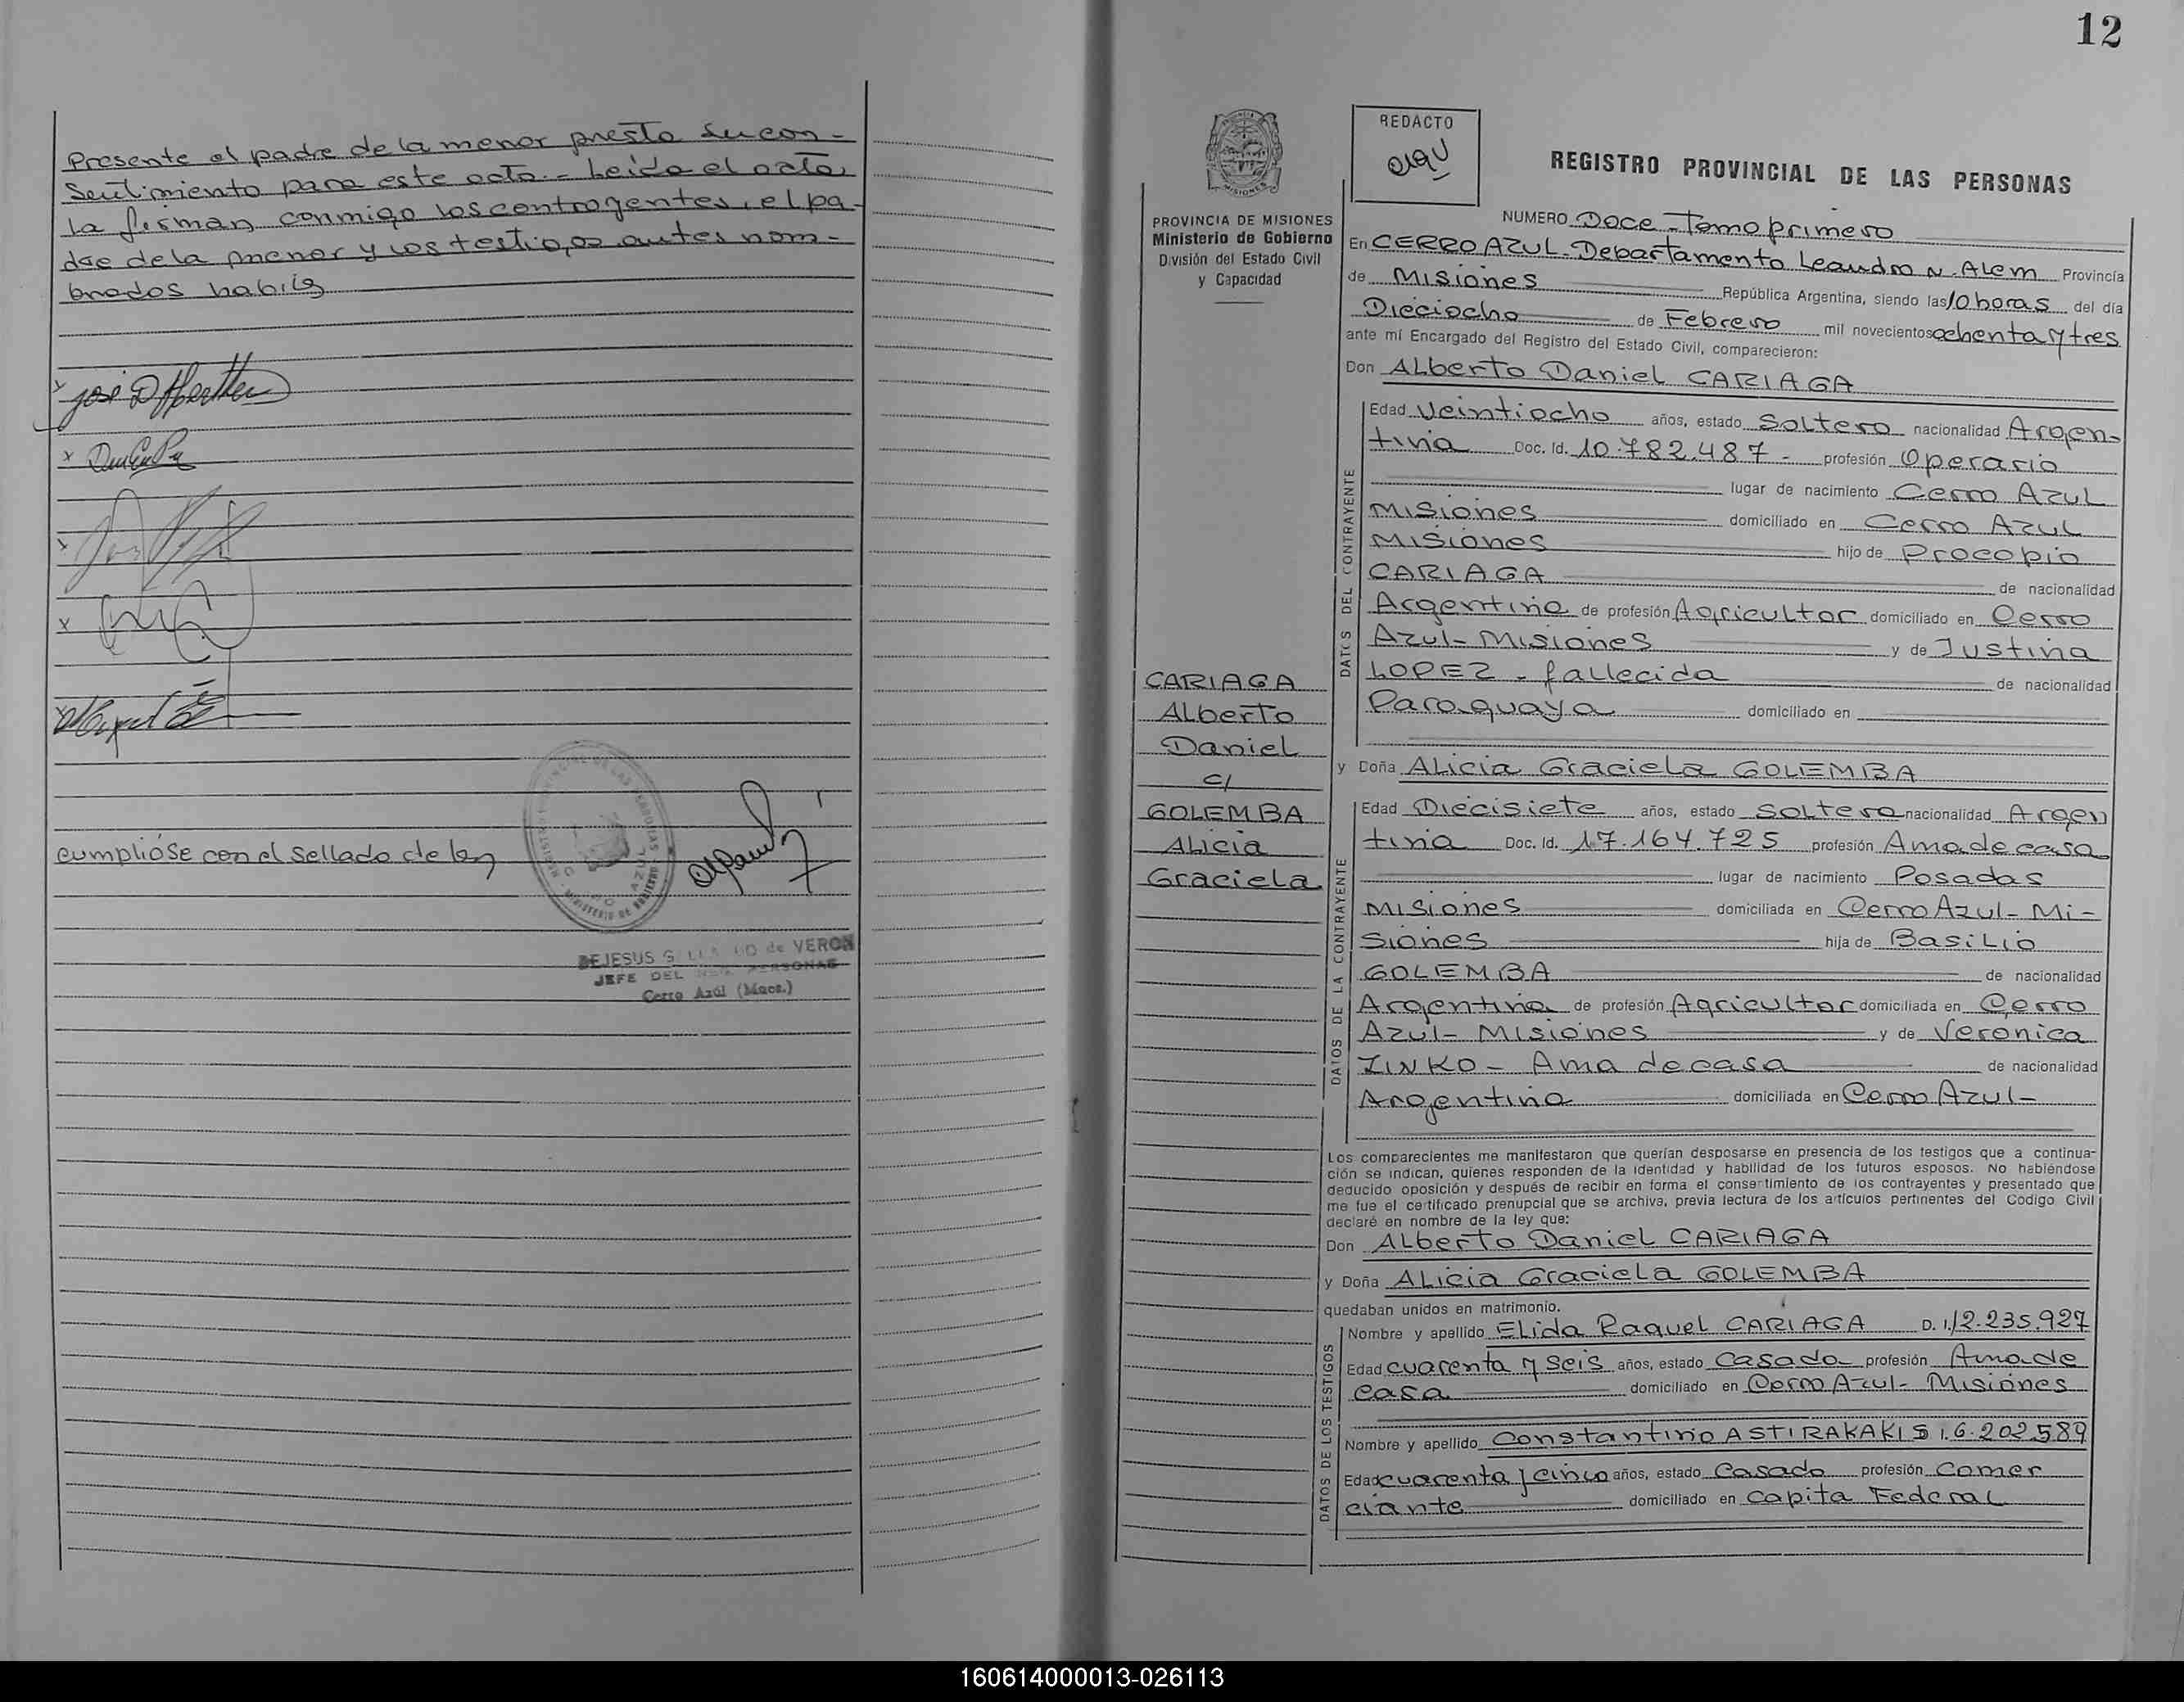 Presente el padre de la menor presta su con-
sentimiento para este acto.- Leída el acta,
la firman conmigo los contrayentes, el pa-
dre de la menor y los testigos antes nom-
brados habiles
cumplióse con el sellado de ley
DEJESUS de VERON
JEFE DEL PERSONAS
Cerro Azúl (Mnes.)
12
MISIONES
PROVINCIA DE MISIONES
Ministerio de Gobierno
División del Estado Civil
y Capacidad
CARIAGA
Alberto
Daniel
c/
GOLEMBA
Alicia
Graciela
REDACTO
REGISTRO PROVINCIAL DE LAS PERSONAS
NUMERO Doce - Tomo primero
En CERRO AZUL - Departamento Leandro N. Alem Provincia
de Misiones República Argentina, siendo las 10 horas del día
Dieciocho de Febrero mil novecientos ochenta y tres
ante mí Encargado del Registro del Estado Civil, comparecieron:
Don Alberto Daniel CARIAGA
DATOS DEL CONTRAYENTE
Edad Veintiocho años, estado Soltero nacionalidad Argen-
tina Doc. Id. 10.782.487 - profesión Operario
lugar de nacimiento Cerro Azul
Misiones domiciliado en Cerro Azul
Misiones hijo de Procopio
CARIAGA de nacionalidad
Argentina de profesión Agricultor domiciliado en Cerro
Azul - Misiones y de Justina
LOPEZ - fallecida de nacionalidad
Paraguaya domiciliado en
y Doña Alicia Graciela GOLEMBA
DATOS DE LA CONTRAYENTE
Edad Diecisiete años, estado Soltera nacionalidad Argen
tina Doc. Id. 17.164.725 profesión Ama de casa
lugar de nacimiento Posadas
Misiones domiciliada en Cerro Azul - Mi-
siones hija de Basilio
GOLEMBA de nacionalidad
Argentina de profesión Agricultor domiciliada en Cerro
Azul - Misiones y de Veronica
ZINKO - Ama de casa de nacionalidad
Argentina domiciliada en Cerro Azul -
Los comparecientes me manifestaron que querían desposarse en presencia de los testigos que a continua-
ción se indican, quienes responden de la identidad y habilidad de los futuros esposos. No habiéndose
deducido oposición y después de recibir en forma el consentimiento de los contrayentes y presentado que
me fue el certificado prenupcial que se archiva, previa lectura de los artículos pertinentes del Codigo Civil
declaré en nombre de la ley que:
Don Alberto Daniel CARIAGA
y Doña Alicia Graciela GOLEMBA
quedaban unidos en matrimonio.
DATOS DE LOS TESTIGOS
Nombre y apellido Elida Raquel CARIAGA D. I. 12.235.927
Edad cuarenta y seis años, estado Casada profesión Ama de
casa domiciliado en Cerro Azul - Misiones
Nombre y apellido Constantino ASTIRAKAKIS I. 6.202.589
Edad cuarenta y cinco años, estado Casado profesión Comer
ciante domiciliado en Capita Federal
160614000013-026113